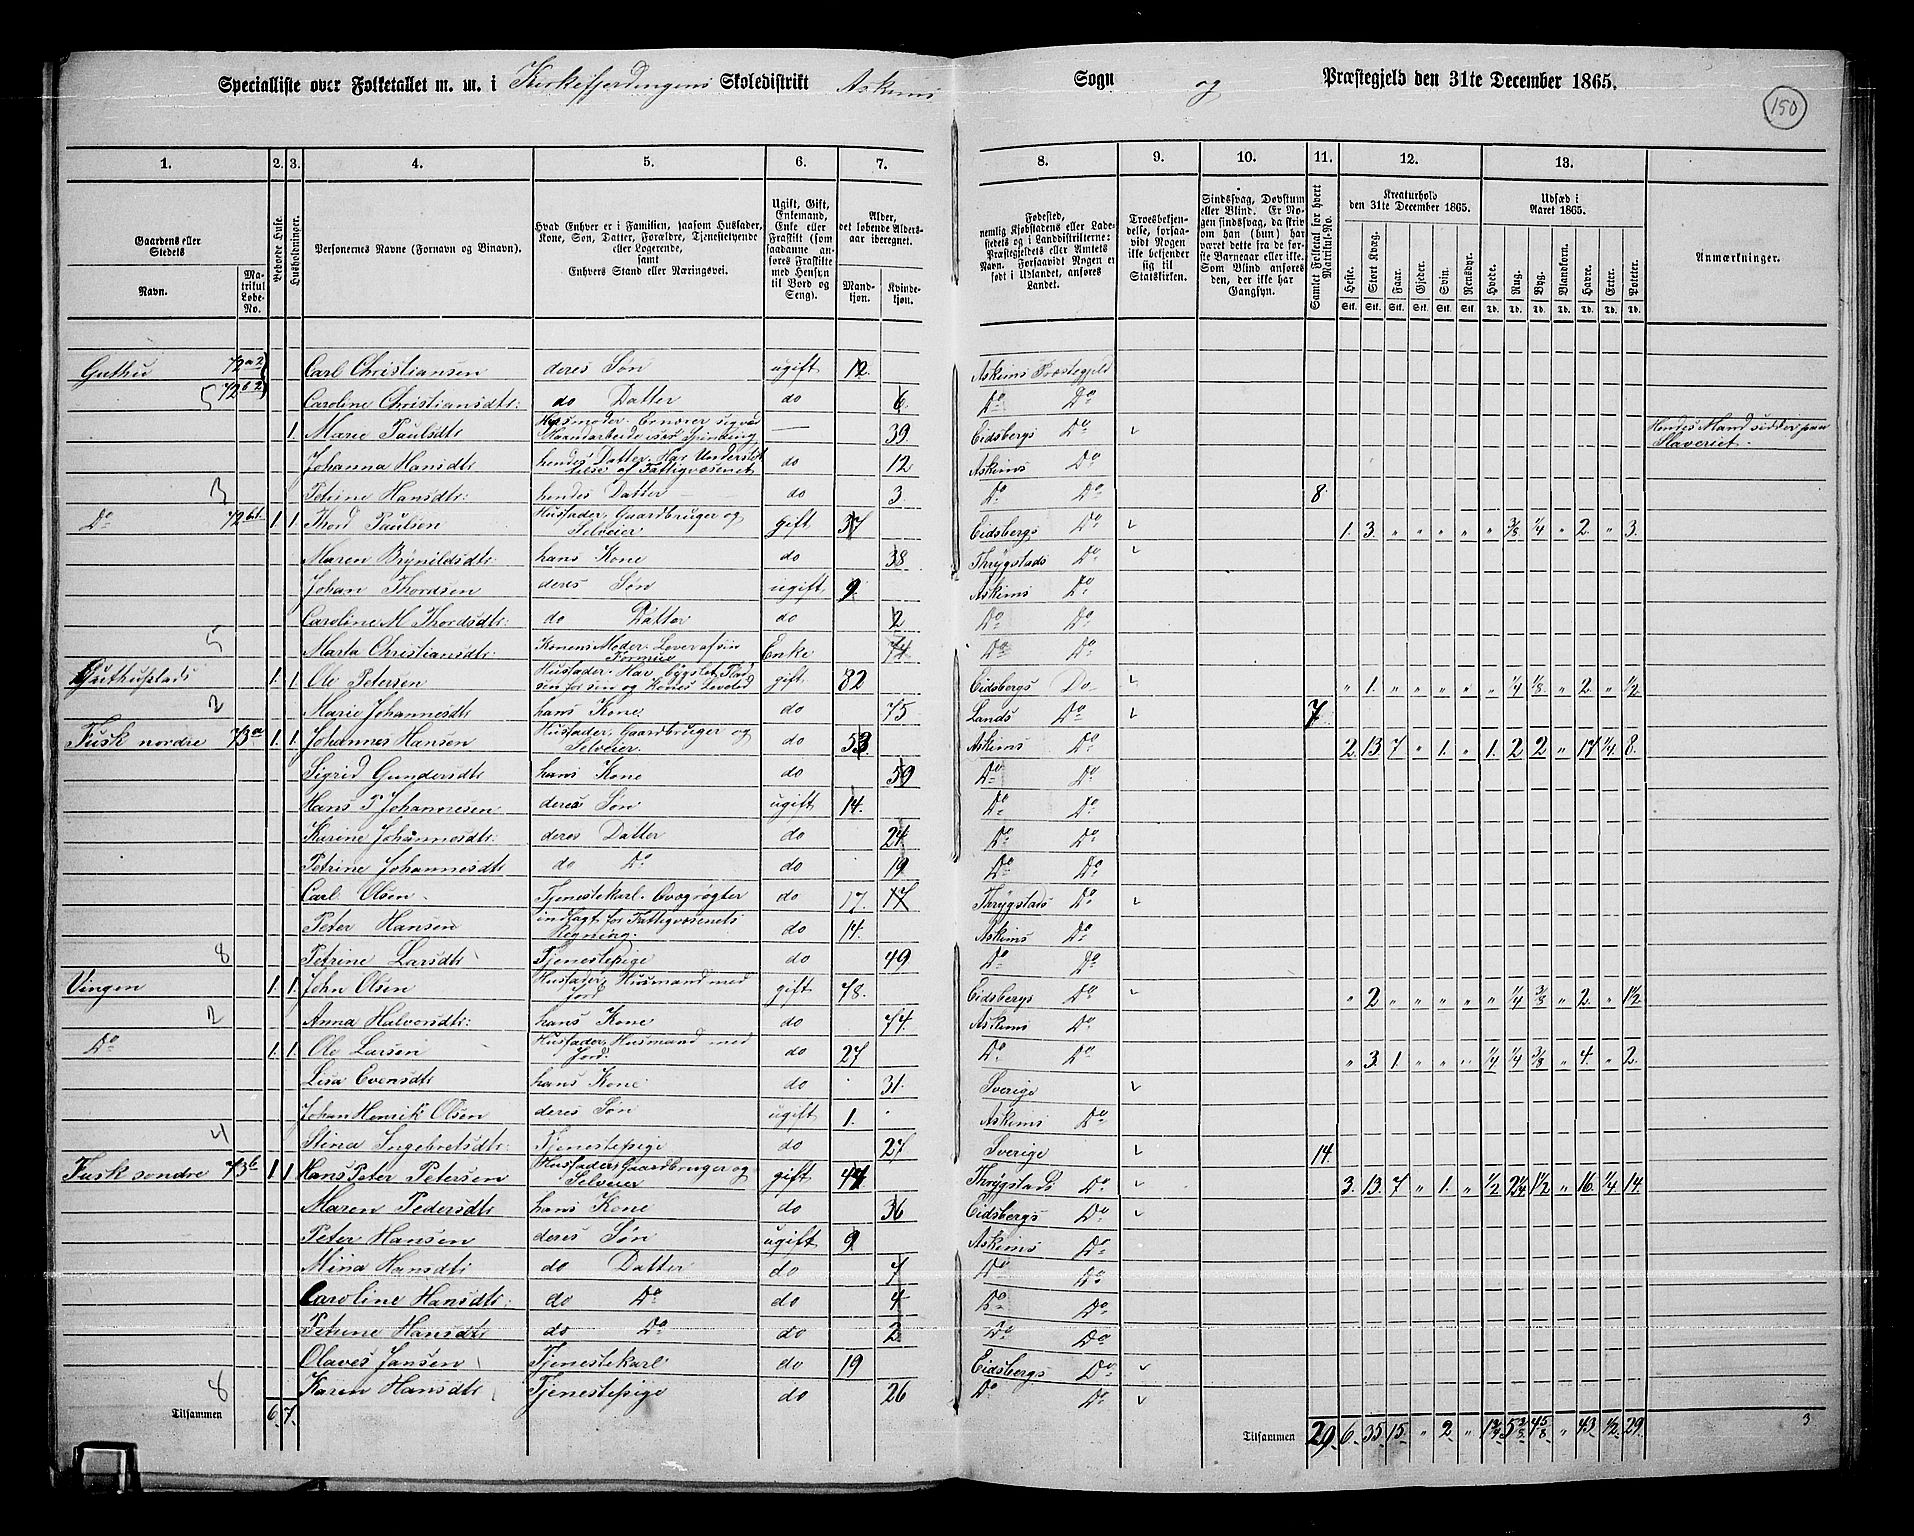 Specialliste over Folketallet m. m. i Kirkefjerdingens Skoledistrikt Askims Sogn og Præstegjeld den 31te December 1865.
150
1. 2. 3. 4. 5. 6. 7. 8. 9. 10. 11. 12. 13.
Gaardens eller Stedets
Navn.
Matrikul Løbe-No.
Beboede Huse.
Husholdninger.
Personernes Navne (Fornavn og Binavn).
Hvad Enhver er i Familien, saasom Husfader, Kone, Søn, Datter, Forældre, Tjenestetyende eller Logerende, samt Enhvers Stand eller Næringsvei.
Ugift, Gift, Enkemand, Enke eller Fraskilt (som saadanne anføres Fraskilte med Hensyn til Bord og Seng).
Alder, det løbende Aldersaar iberegnet.
Mandkjøn. Kvindekjøn.
Fødested, nemlig Kjøbstadens eller Ladestedets og i Landdistrikterne: Præstegjeldets eller Amtets Navn. Forsaavidt Nogen er født i Udlandet, anføres Landet.
Troesbekjendelse, forsaavidt Nogen ikke bekjender sig til Statskirken.
Sindssvag, Døvstum eller Blind. Er Nogen sindssvag, da skriv om han (hun) har været dette før de første Barneaar eller ikke. Som Blind anføres den, der ikke har Gangsyn.
Samlet Folketal for hvert Matrikul-No.
Kreaturhold den 31te December 1865.
Heste. Stort Kvæg. Faar. Gjeder. Svin. Rensdyr.
Stk. Stk. Stk. Stk. Stk. Stk.
Udsæd i Aaret 1865.
Hvede. Rug. Byg. Blandkorn. Havre. Erter. Poteter.
Td. Td. Td. Td. Td. Td. Td.
Anmærkninger.
Guthu 72a2 Carl Christiansen deres Søn ugift 12 Askims Præstegjeld
5 72b2 Caroline Christiansdtr: do Datter do 6 Do Do
1. Marie Paulsdtr — 39 Eidsbergs Do Hendes Mand sidder paa Slaveriet.
Johanna Hansdtr do 12 Askims Do
3 Petrine Hansdtr: hendes Datter do 3 Do Do 8
Do 72b1 1. 1. Thord Paulsen Husfader, Gaardbruger og Selveier gift 37 Eidsbergs Do 1. 3. " " " " " 3/8 1/4 " 2. " 3.
Maren Brynildsdtr: hans Kone do 38 Thrygstads Do
Johan Thordsen deres Søn ugift 9 Askims Do
Caroline M Thordsdtr: do Datter do 2 Do Do
5 Marta Christiansdtr: Konens Moder. Lever af sin Formue Enke 74 Do Do
Guthuplads 1. 1. Ole Petersen gift 82 Eidsbergs Do " 1. " " " " " 1/4 1/8 " 2. " 1/2
2 Marie Johannesdtr hans Kone. do 75 Lands Do 7
Fusk nordre 73a 1. 1. Johannes Hansen Husfader, Gaardbruger og Selveier. do 53 Askims Do 2. 13. 7 " 1. " 1. 2 2 " 17. 1/4. 8.
Sigrid Gundersdtr hans Kone do 59 Do Do
Hans P Johannesen deres Søn ugift 14. Do Do
Karine Johannesdtr deres Datter do 24 Do Do
Petrine Johannesdtr do Do do 19 Do Do
Carl Olsen Tjenestekarl. Qvægrøgter do 17. 17 Thrygstads Do
Peter Hansen indlagt for Fattigvæsenets Regning. do 14. Askims Do
8 Petrine Larsdtr Tjenestepige do 49 Do Do
Vingen 1. 1. John Olsen Husfader, Husmand med Jord gift 78. Eidsbergs Do " 2 " " " " " 1/4 3/8 " 2. " 1 1/2
2 Anna Halvorsdtr: hans Kone do 74. Askims Do
Do 1. 1. Ole Larsen Husfader, Husmand med Jord. do 27 Do Do " 3. 1. " " " 1/4 1/4 3/8 " 4. " 2.
Lisa Evensdtr hans Kone. do 31. Sverige
Johan Henrik Olsen deres Søn ugift 1. Askims Do
4 Stina Ingebretsdtr: Tjenestepige do 27 Sverige 14.
Fusk søndre 73b 1. 1 Hans Peter Petersen Husfader, Gaardbruger og Selveier gift 44 Thrygstads Do 3. 13. 7 " 1. " 1/2 2 1/4 1 1/2 " 16. 1/4. 14.
Maren Pedersdtr hans Kone do 36 Eidsbergs Do
Peter Hansen deres Søn ugift 9 Askims Do
Mina Hansdtr do Datter do 7 Do Do
Caroline Hansdtr: do Do do 4 Do Do
Petrine Hansdtr do Do do 2 Do Do
Olaves Jansen Tjenestekarl do 19 Eidsbergs Do
8 Karen Hansdtr Tjenestepige do 26 Do Do
Tilsammen 6. 7. Tilsammen 29. 6. 35. 15. " 2. " 1 3/4 5 3/8 4 5/8 " 43. 1/2. 29. 3